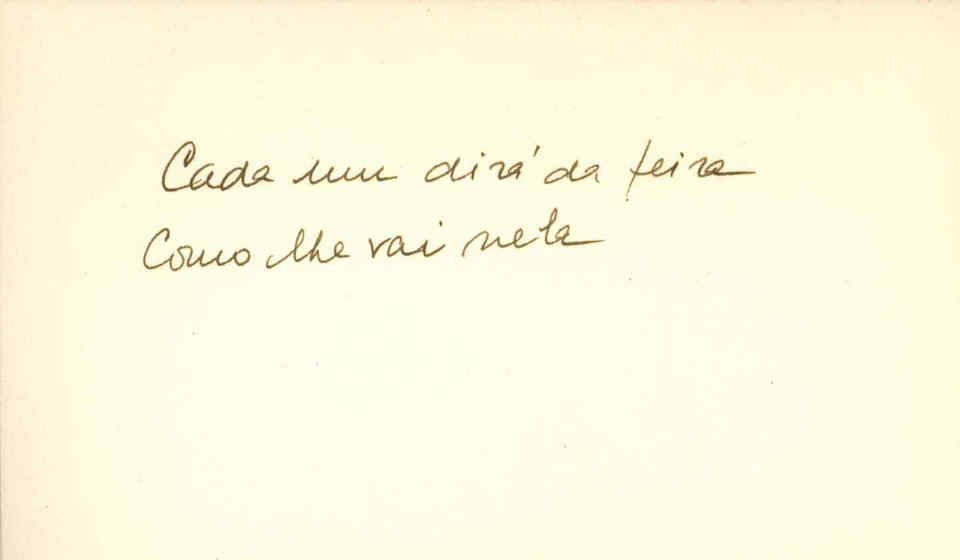 Cada um dirá da feira
Como lhe vai nela